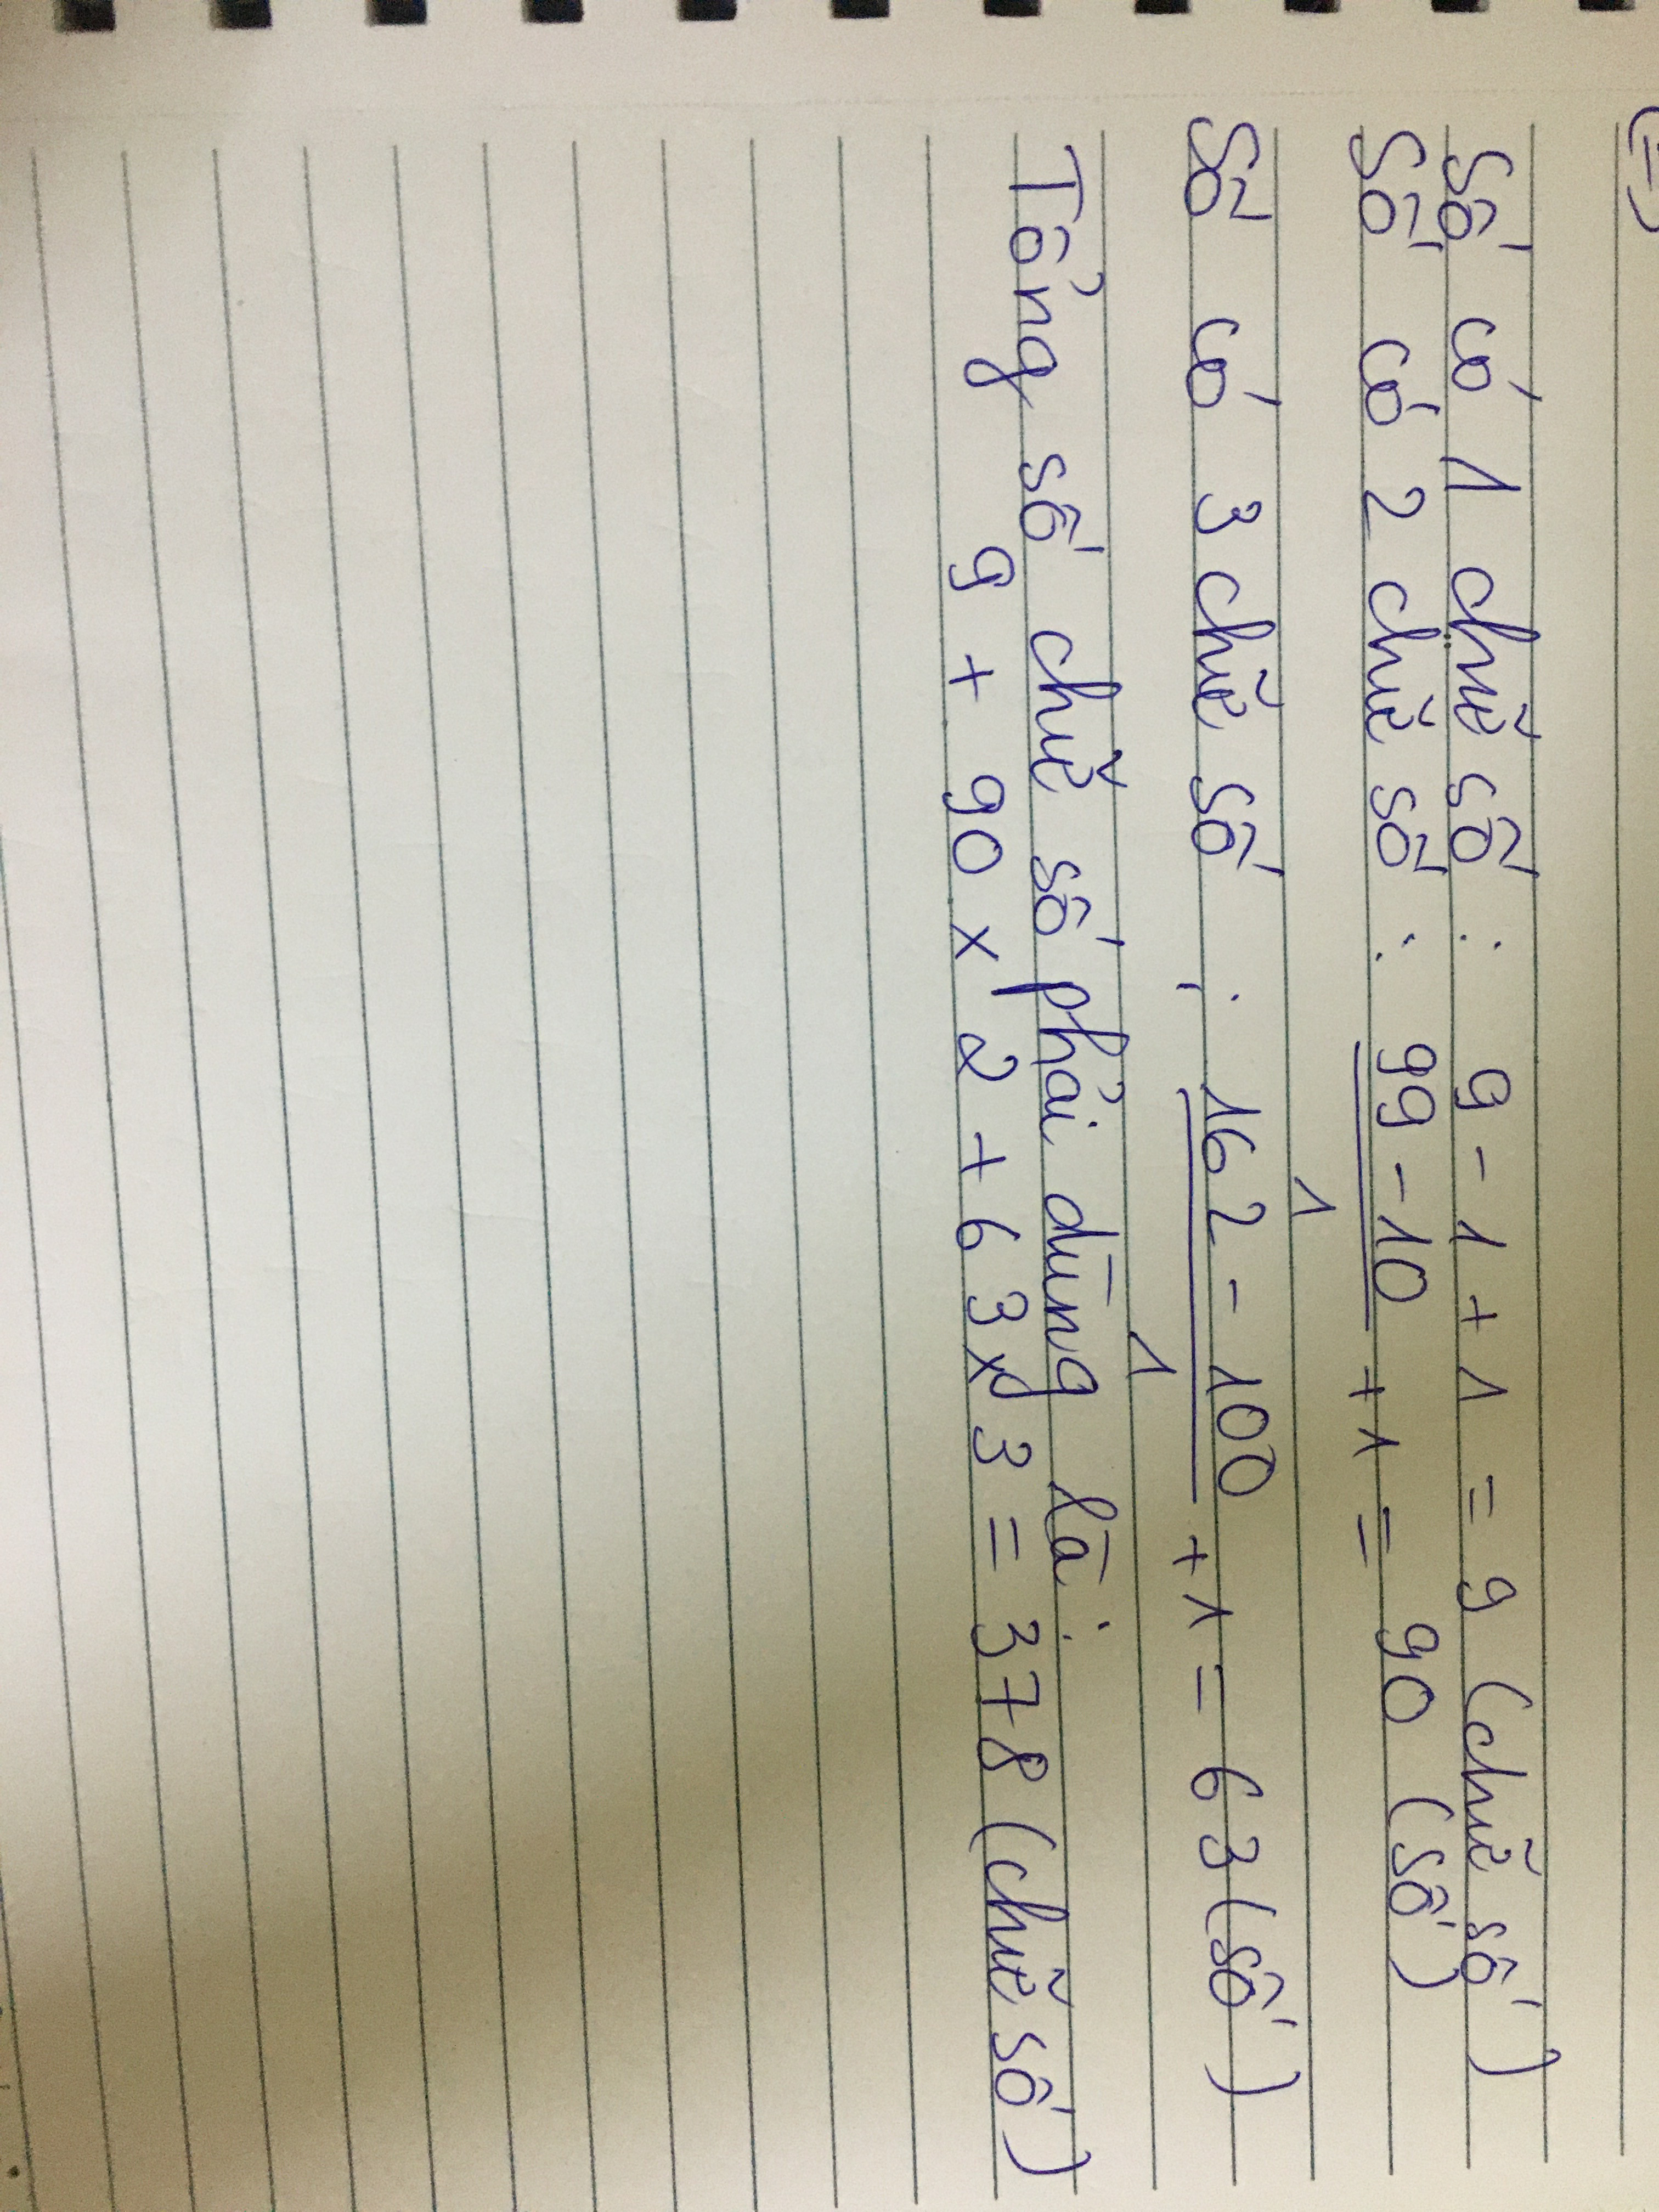 Số có 1 chữ số : 9 - 1 + 1 = 9 (chữ số)
Số có 2 chữ số : 99 - 10 + 1 = 90 (số)
1
Số có 3 chữ số : 162 - 100 + 1 = 63 (số)
1
Tổng số chữ số phải dùng là :
9 + 90 x 2 + 63 x 3 = 378 (chữ số)